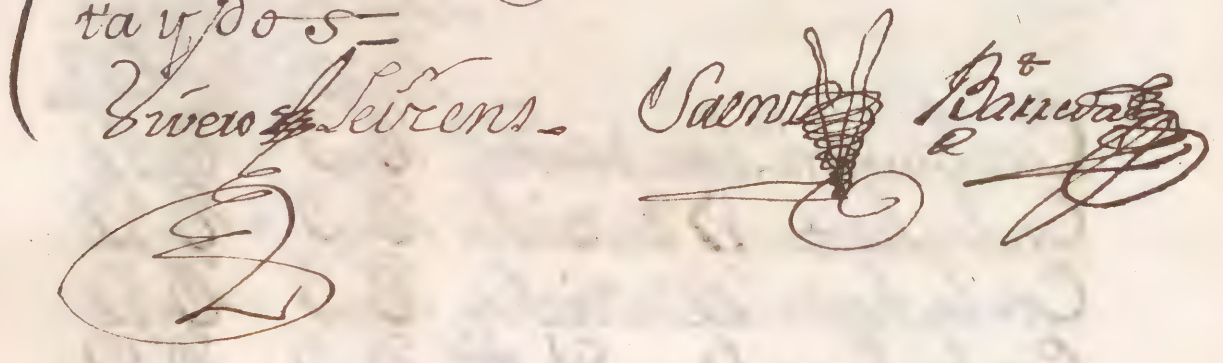 ta y dos
Vivero Seixens Saenz Barreda